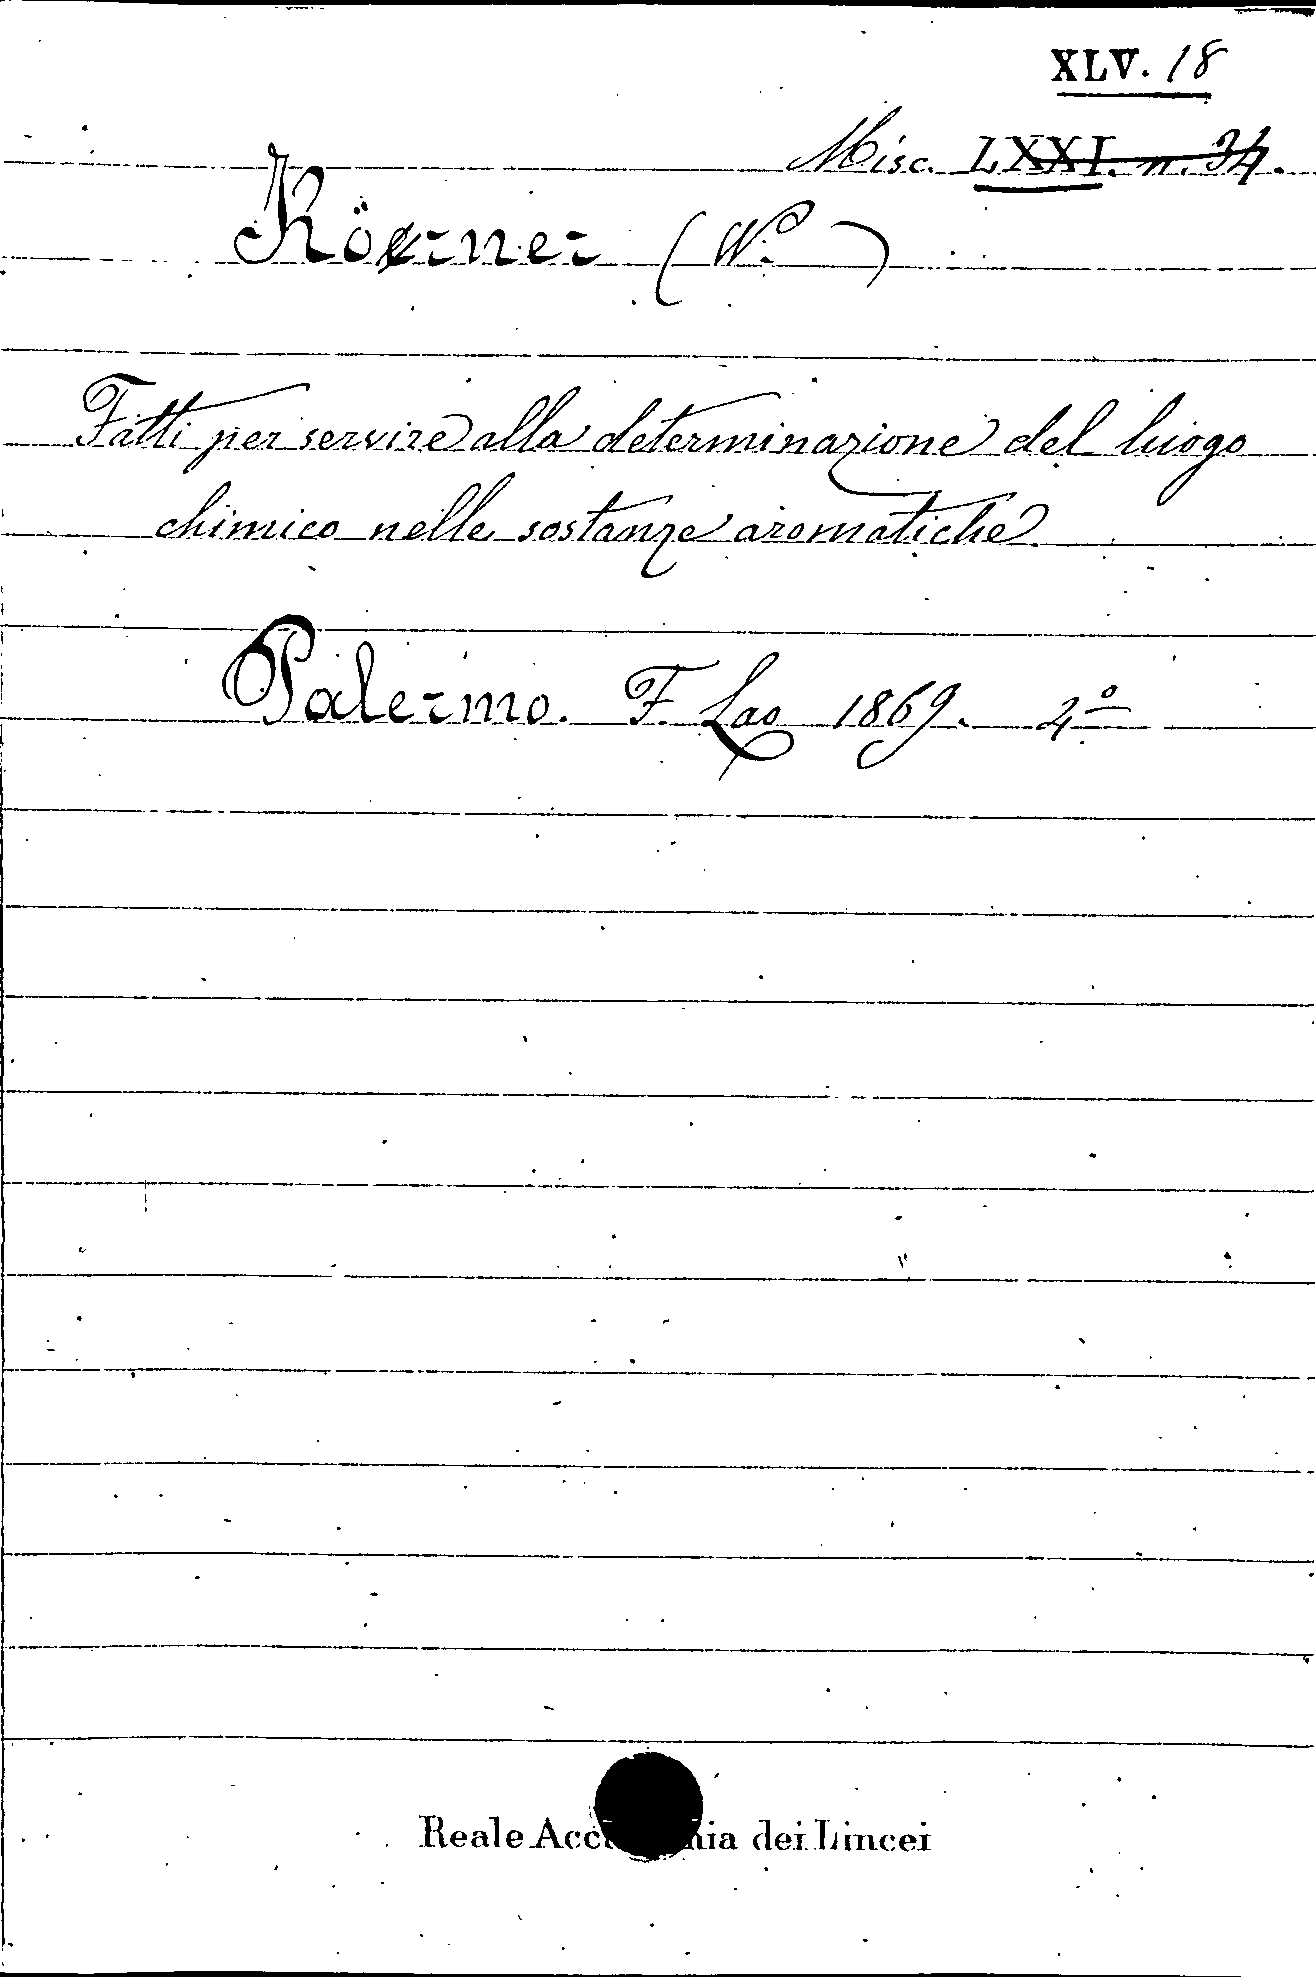 XLV. 18
Misc. LXXI. n. 34.
Körner (W.)
Fatti per servire alla determinazione del luogo
chimico nelle sostanze aromatiche
Palermo. F. Lao 1869. 4º
Reale dei Lincei